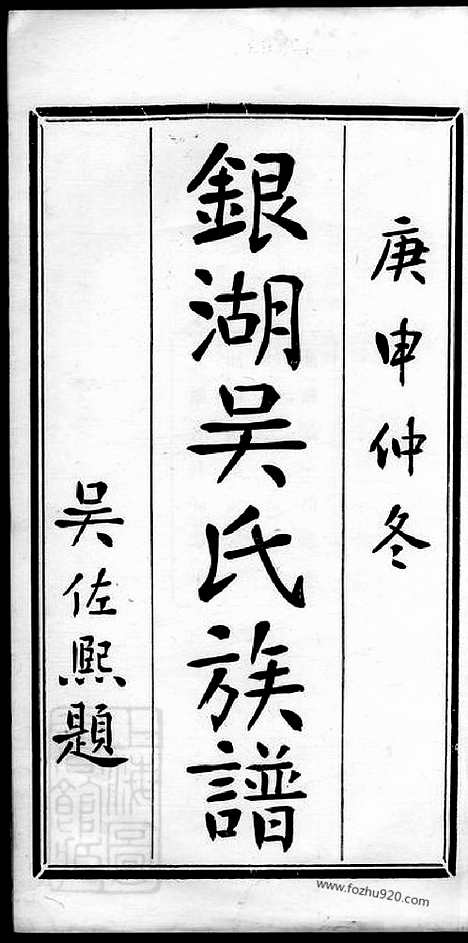 庚申仲冬
銀湖吴氏族譜
吴佐熙題
www.fozhu920.com